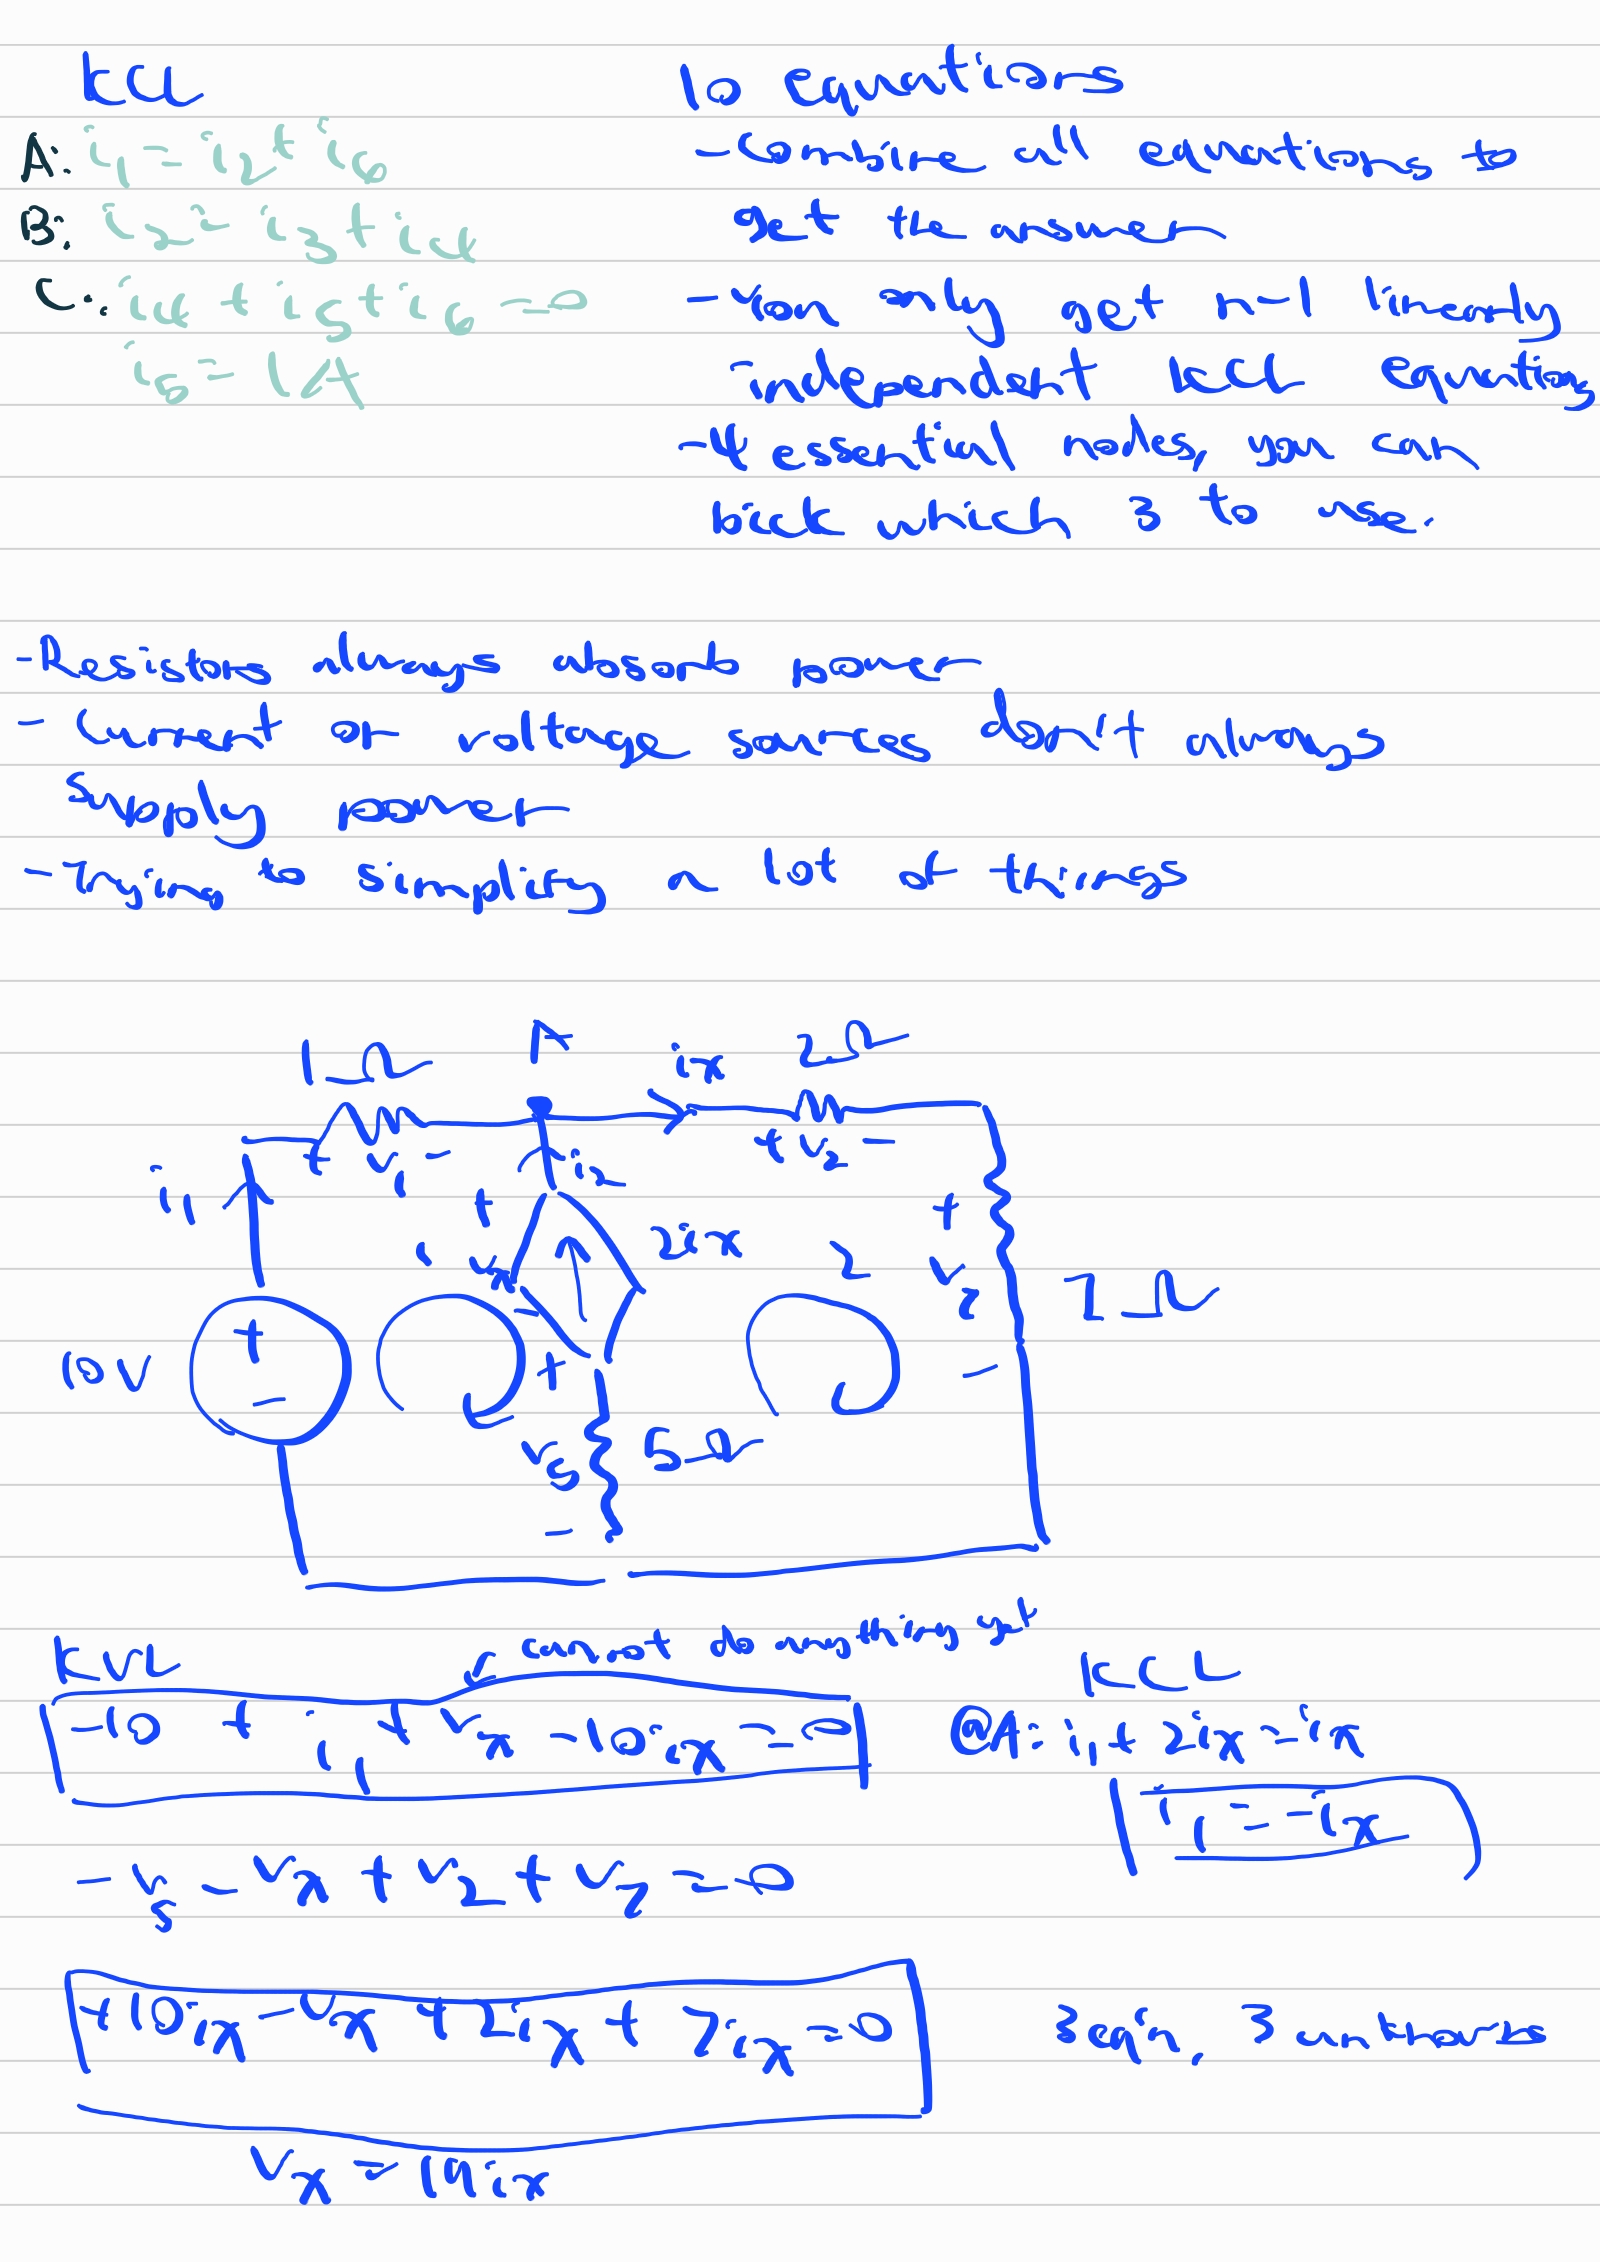 KCL
A: i1 = i2 + i6
B: i2 = i3 + i4
C: i4 + i5 + i6 = 0
i5 = 1A
10 equations
-Combine all equations to
get the answer
-You only get n-1 linearly
independent KCL equations
-4 essential nodes, you can
pick which 3 to use.
-Resistors always absorb power
- Current or voltage sources don't always
supply power
-Trying to simplify a lot of things
1Ω A ix 2Ω
+ v1 - + v2 -
i1 i2
+ vx - 2ix
1 2
+ v7 - 7Ω
10V + -
+ v5 - 5Ω
KVL
cannot do anything yet
-10 + i1 + vx - 10ix = 0
KCL
@A: i1 + 2ix = ix
i1 = -ix
- v5 - vx + v2 + v7 = 0
+10ix - vx + 2ix + 7ix = 0
3 eq'n, 3 unknowns
vx = 19ix